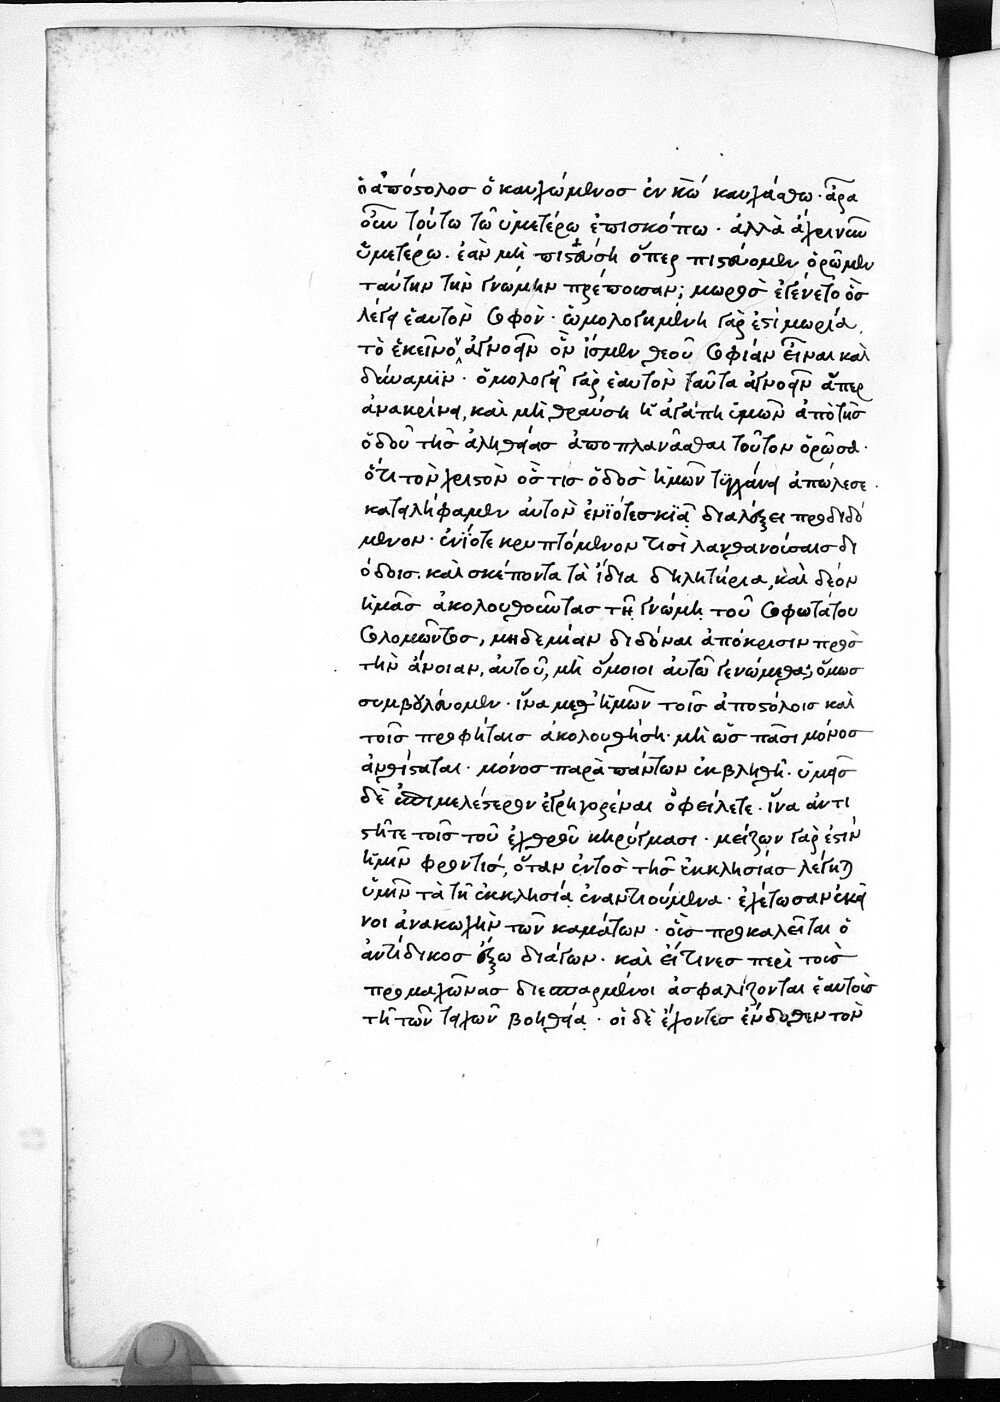 ὁ ἀπόστολος ὁ καυχώμενος ἐν κ̅ω̅ καυχάσθω · ἆρα
οὖν τούτω τῶ ὑμετέρω ἐπισκόπω · ἀλλὰ ἀχρινοῦν
ὑμετέρω · ἐὰν μὴ πιστεύση ὅπερ πιστεύομεν ὁρῶμεν
ταύτην τὴν γνώμην πρέπουσαν; μωρὸς ἐγένετο ὃς
λέγει ἑαυτὸν σοφὸν · ὡμολογημένη γὰρ ἐστὶ μωρία,
τὸ ἐκεῖνον ἀγνοεῖν ὃν ἴσμεν θεοῦ σοφίαν εἶναι καὶ
δύναμιν · ὁμολογεῖ γὰρ ἑαυτὸν ταῦτα ἀγνοεῖν ἅπερ
ἀνακρίνει, καὶ μὴ θραύση ἡ ἀγάπη ὑμῶν ἀπὸ τῆς
ὁδοῦ τῆς ἀληθείας ἀποπλανᾶσθαι τοῦτον ὁρῶσα ·
ὅτι τὸν χριστὸν ὅς τις ὁδὸς ἡμῶν τυγχάνει ἀπώλεσε ·
κατειλήφαμεν αὐτὸν ἐνΐοτε σκιᾷ διαλέξει προδιδό
μενον · ἐνΐοτε κρυπτόμενον τισὶ λανθανούσαις δι
όδοις · καὶ σκέποντα τὰ ἴδια δηλητήρια, καὶ δέον
ἡμᾶς ἀκολουθοῦντας τῆ γνώμη τοῦ σοφωτάτου
σολομῶντος, μηδεμίαν διδόναι ἀπόκρισιν πρὸς
τὴν ἄνοιαν, αὐτοῦ, μὴ ὅμοιοι αὐτῶ γενώμεθα; ὅμως
συμβουλεύομεν · ἵνα μεθ' ἡμῶν τοῖς ἀποστόλοις καὶ
τοῖς προφήταις ἀκολουθήση · μὴ ὡς πᾶσι μόνος
ἀνθίσταται · μόνος παρὰ πάντων ἐκβληθῆ · ὑμᾶς
δὲ ἐπιμελέστερον ἐγρηγορέναι ὀφείλετε · ἵνα ἀντι
στῆτε τοῖς τοῦ ἐχθροῦ κηρύγμασι · μείζων γὰρ ἐστὶν
ἡμῖν φροντὶς, ὅταν ἐντὸς τῆς ἐκκλησίας λέγηται
ὑμῖν τὰ τῆ ἐκκλησία ἐναντιούμενα · ἐχέτωσαν ἐκεῖ
νοι ἀνακωχὴν τῶν καμάτων · οἷς προκαλεῖται ὁ
ἀντίδικος ἔξω διάγων · καὶ εἴ τινες περὶ τοὺς
προμαχῶνας διεσπαρμένοι ἀσφαλίζονται ἑαυτοὺς
τῆ τῶν τειχῶν βοηθεία · οἱ δὲ ἔχοντες ἔνδοθεν τὸν